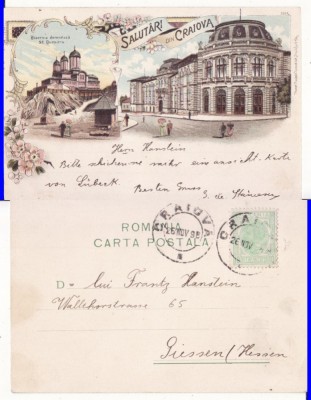 SALUTĂRI DIN CRAIOVA
Biserica domnească
Herrn Hanstein
Bitte schicken mir eine ansicht-Karte
von Lübeck. Besten Gruss
ROMANIA
CARTA POSTALA
CRAIOVA
26 NOV 98
CRAI
26 NOV
D= lui Frantz Hanstein
Wallthorstrasse 65
Giessen/Hessen